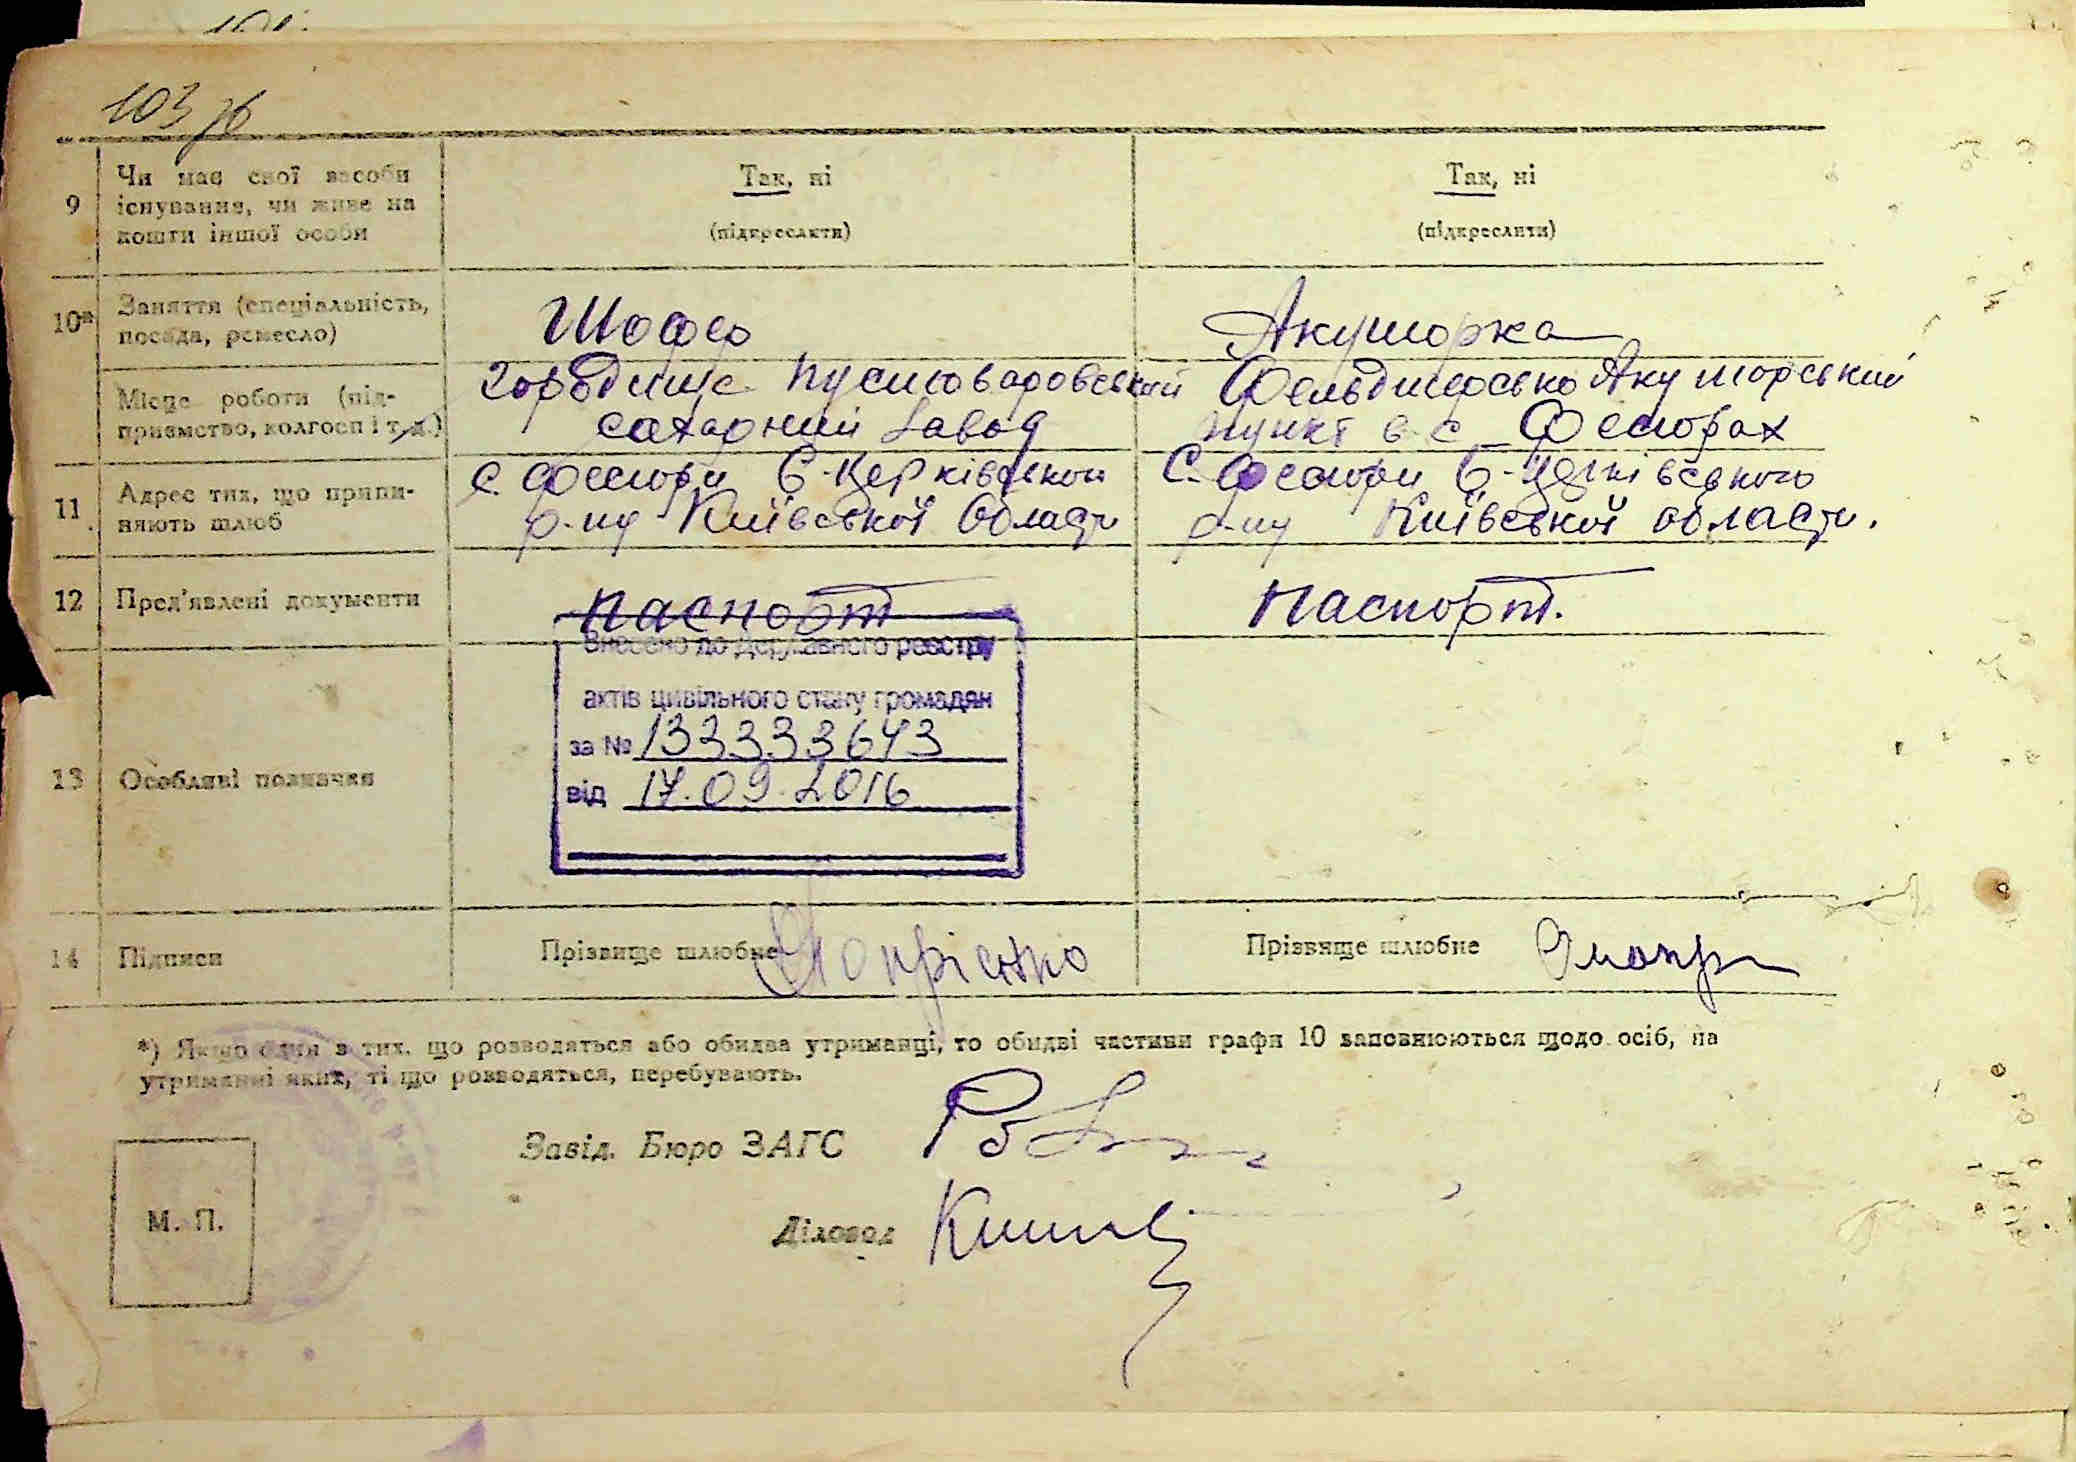 103 зв
9 Чи має свої засоби існування, чи живе на кошти іншої особи
Так, ні
(підкреслити)
Так, ні
(підкреслити)
10* Заняття (спеціальність, посада, ремесло)
Шофер
Акушорка
Місце роботи (підприємство, колгосп і т. д.)
Городище Пустоваровський
сахарний завод
Фельдшерсько Акушорський
пункт в с Фесюрах
11 Адрес тих, що припиняють шлюб
с. Фесюри Б-Церківського
р-ну Київської Області
С. Фесюри Б-Церківського
р-ну Київської області.
12 Пред'явлені документи
Паспорт
Паспорт.
13 Особливі позначки
Внесено до Державного реєстру
актів цивільного стану громадян
за № 133333643
від 17.09.2016
14 Підписи
Прізвище шлюбне
Прізвище шлюбне
*) Якщо один з тих, що розводяться або обидва утриманці, то обидві частини графи 10 заповнюються щодо осіб, на
утриманні яких, ті що розводяться, перебувають.
Завід. Бюро ЗАГС
М. П.
Діловод